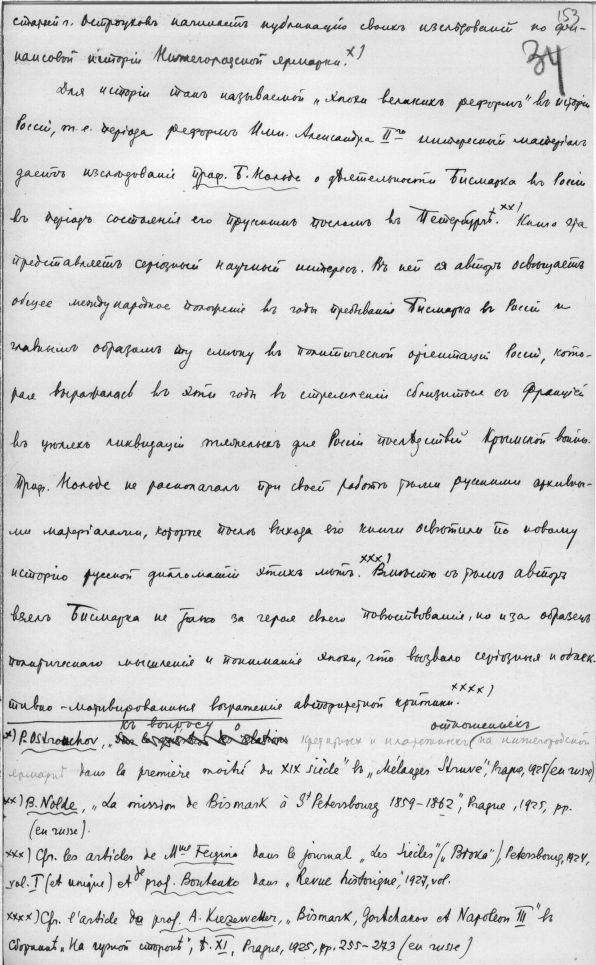 153
34
статей г. Остроухов начинаетъ публикацію своихъ изслѣдованій по фи-
нансовой исторіи Нижегородской ярмарки. x)
Для исторіи такъ называемой „эпохи великихъ реформъ" въ исторіи
Россіи, т. е. періода реформъ Имп. Александра II го интересный матеріалъ
даетъ изслѣдованіе проф. Б. Нольде о дѣятельности Бисмарка въ Россіи
въ періодъ состоянія его прусскимъ посломъ въ Петербургѣ. xx) Книга эта
представляетъ серіозный научный интересъ. Въ ней ея авторъ освѣщаетъ
общее международное положеніе въ годы пребыванія Бисмарка въ Россіи и
главнымъ образомъ ту смѣну въ политической оріентаціи Россіи, кото-
рая выражалась въ эти годы въ стремленіи сблизиться съ Франціей
въ цѣляхъ ликвидаціи тяжелыхъ для Россіи послѣдствій Крымской войны.
Проф. Нольде не располагалъ при своей работѣ тѣми русскими архивны-
ми матеріалами, которые послѣ выхода его книги освѣтили по новому
исторію русской дипломатіи этихъ лѣтъ. xxx) Вмѣстѣ съ тѣмъ авторъ
взялъ Бисмарка не только за героя своего повѣствованія, но и за образецъ
политическаго мышленія и пониманія эпохи, что вызвало серіозныя и объек-
тивно-мотивированныя возраженія авторитетной критики. xxxx)
къ вопросу о отношеніяхъ
x) P. Ostrouchov, „ кредитныхъ и платежныхъ на нижегородской
ярмаркѣ dans la première moitié du XIX siècle" въ „Mélanges Struve", Prague, 1925 (en russe)
xx) B. Nolde, „La mission de Bismark à St Petersbourg 1859-1862", Prague, 1925, pp.
(en russe).
xxx) Cfr. les articles de Mme Feigina dans le journal „Les Siècles" („Вѣка"), Petersbourg, 1924,
vol. I (et unique) et de prof. Boutenko dans „Revue historique", 1927, vol.
xxxx) Cfr. l'article de prof. A. Kiezewetter, „Bismark, Gortchakov et Napoleon III" въ
Сборникѣ „На чужой сторонѣ", т. XI, Prague, 1925, pp. 255-273 (en russe)